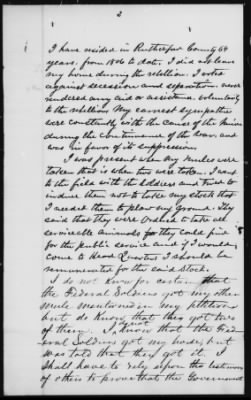 2
I have resided in Rutherford County 64
years, from 1806 to date. I did not leave
my home during the rebellion. I voted
against secession and seperation. never
rendered any aid or assistance voluntarily
to the rebellion. My earnest sympathies
were constantly with the cause of the Union
during the continuance of the war and
was in favor of its suppression.
I was present when my mules were
taken that is when two were taken. I went
to the field with the soldiers and tried to
induce them not to take my stock that
I needed them to plow my ground. They
said that they were ordered to take all
serviceable animals they could find
for the public service and if I would
come to Head Quarters I should be
remunerated for the said stock.
I do not know for certain that
the Federal Soldiers got my other
mule mentioned in my petition,
but do know that they got two
of them. I do not know that the Fed
eral Soldiers got my horse, but
was told that they got it. I
shall have to rely upon the testimony
of others to prove that the Government